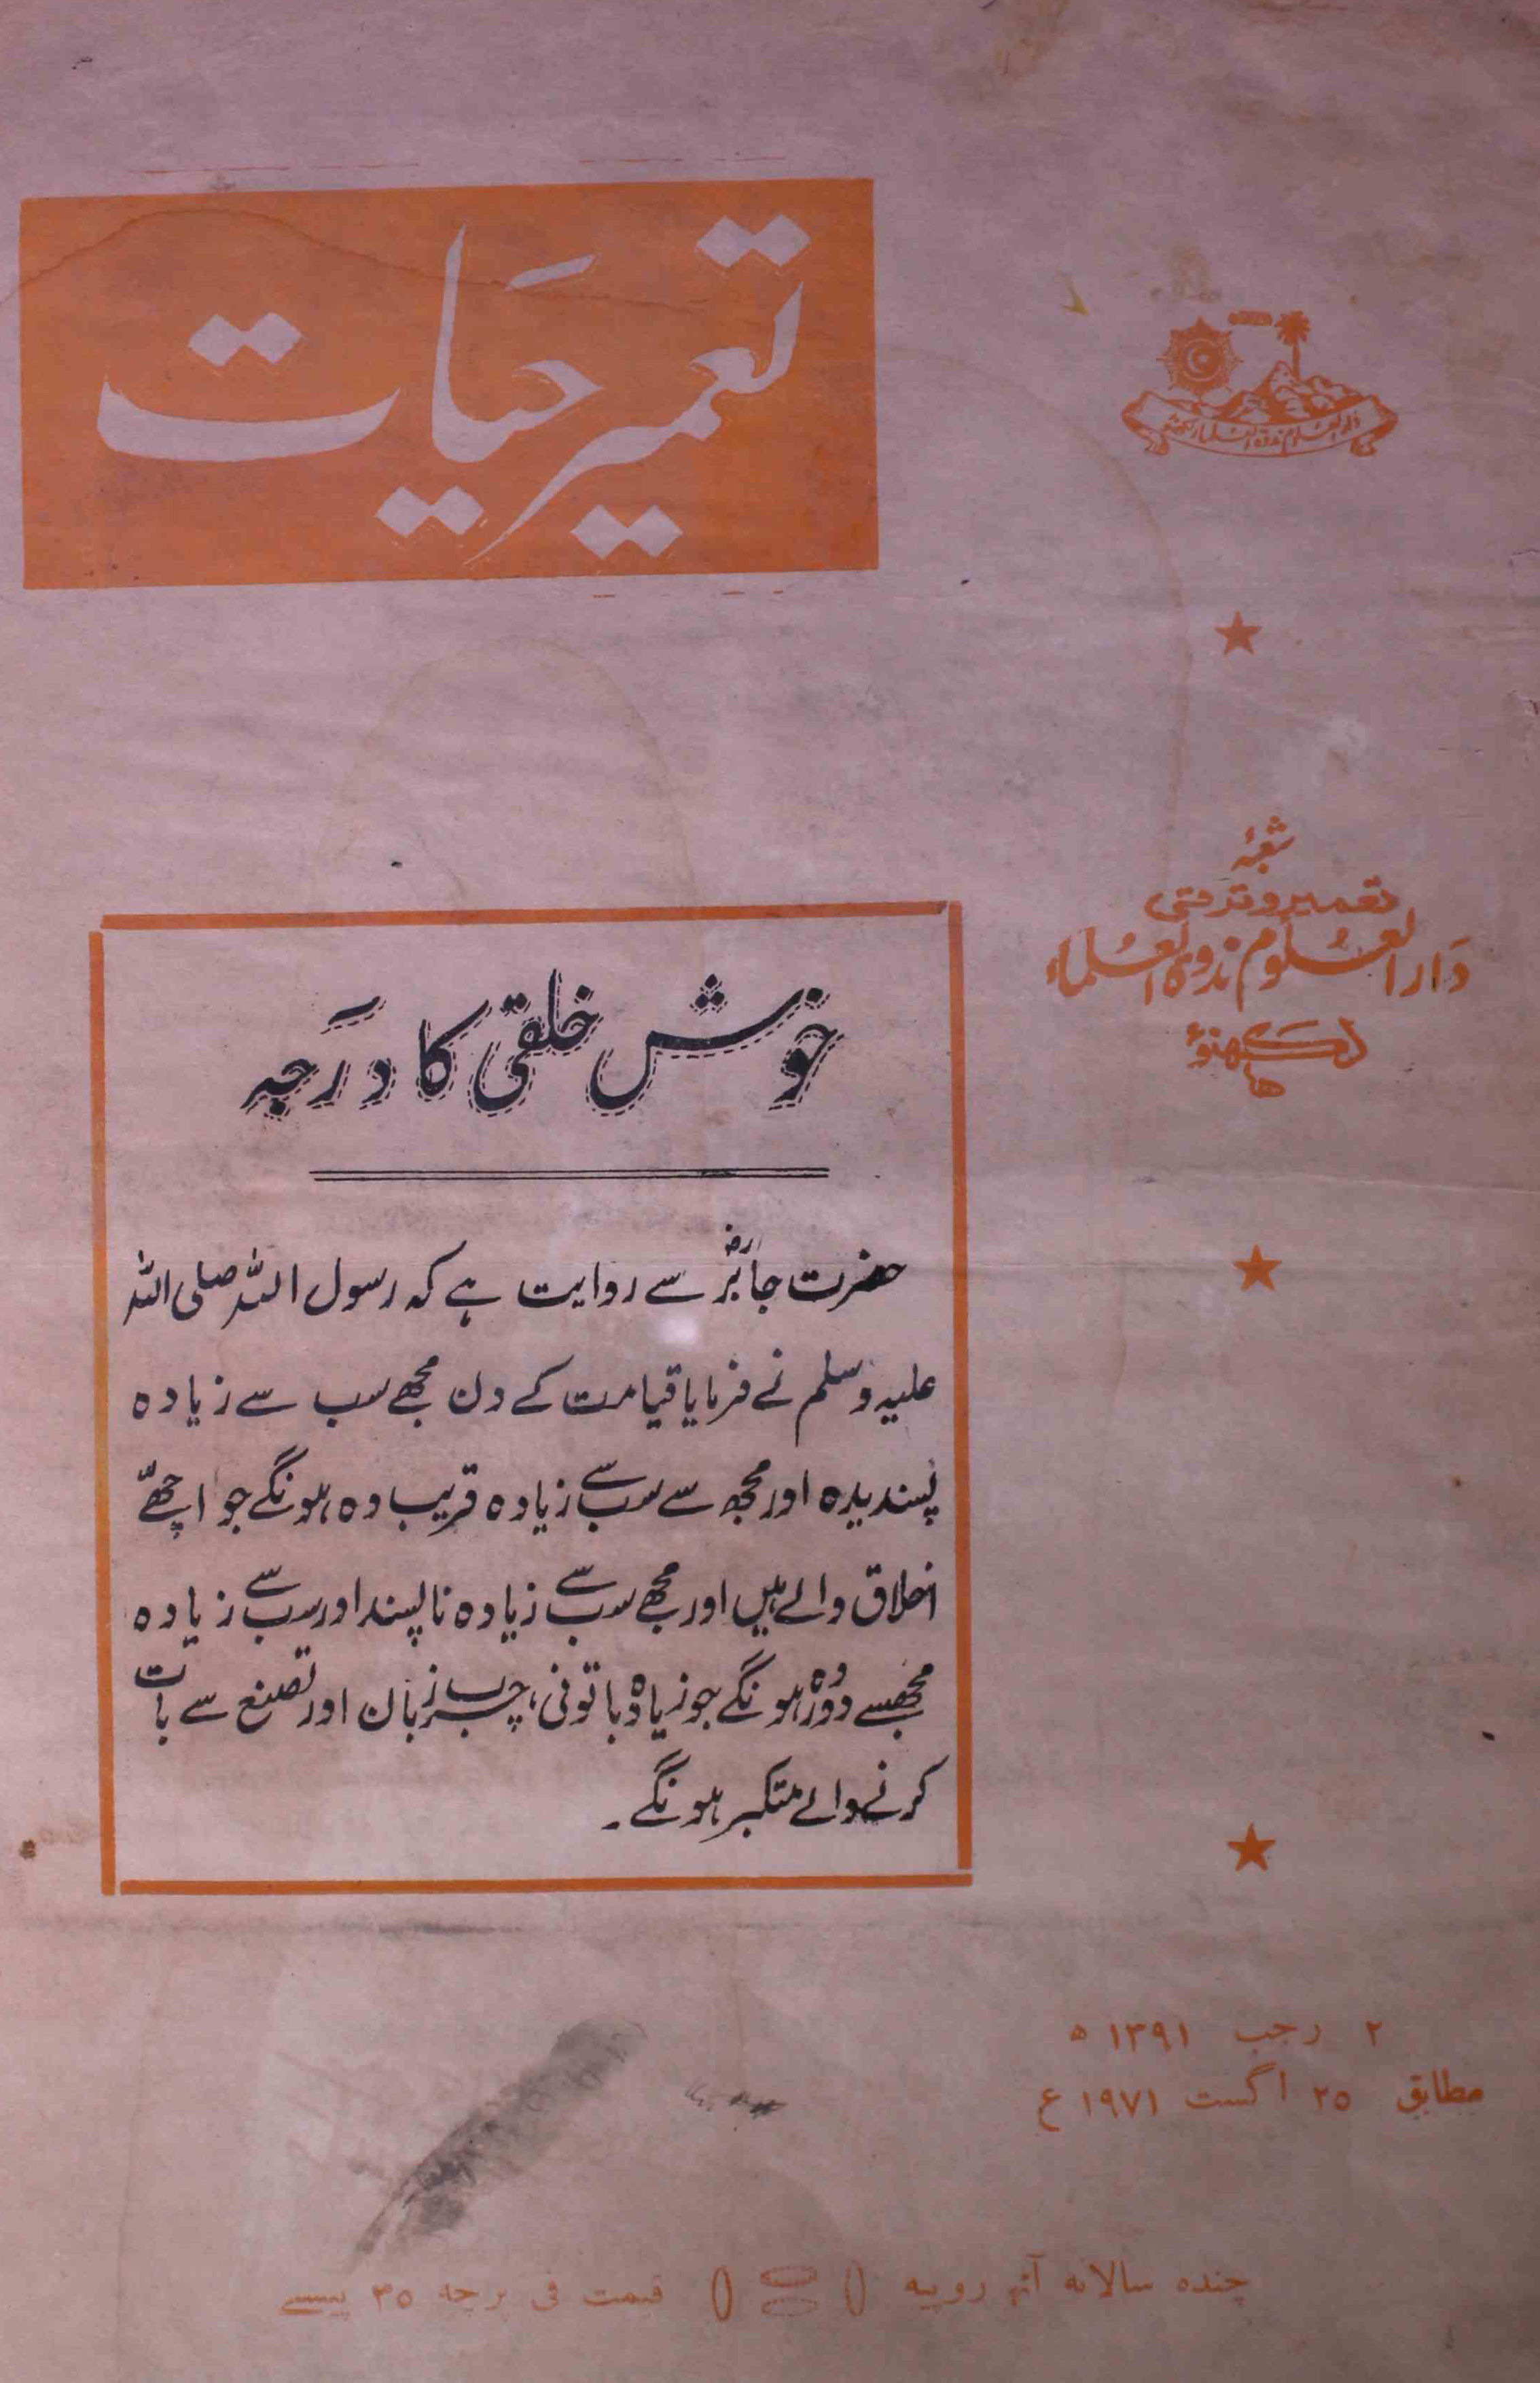 تعمیر حیات
دار العلوم ندوۃ العلماء لکھنؤ
شعبۂ
تعمیر و ترقی
دار العلوم ندوۃ العلماء
لکھنؤ
خوش خلقی کا درجہ
حضرت جابرؓ سے روایت ہے کہ رسول اللہ صلی اللہ
علیہ وسلم نے فرمایا قیامت کے دن مجھے سب سے زیادہ
پسندیدہ اور مجھ سے سب سے زیادہ قریب وہ ہونگے جو اچھے
اخلاق والے ہیں اور مجھے سب سے زیادہ ناپسند اور سب سے زیادہ
مجھسے دور وہ ہونگے جو زیادہ باتونی، چرب زبان اور تصنع سے بات
کرنے والے متکبر ہونگے۔
۲ رجب ۱۳۹۱ ھ
مطابق ۲۵ اگست ۱۹۷۱ ع
چندہ سالانہ آٹھ روپیہ
قیمت فی پرچہ ۳۵ پیسے